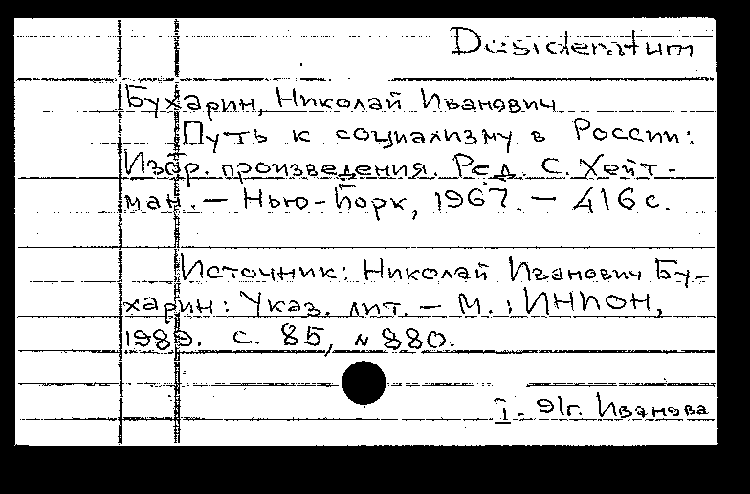 Desideratum
Бухарин, Николай Иванович
Путь к социализму в России:
Избр. произведения. Ред. С. Хейт-
ман. — Нью-Йорк, 1967. — 416 с.
Источник: Николай Иванович Бу-
харин: Указ. лит. — М.: ИНИОН,
1989. с. 85, № 880.
I. 91г. Иванова